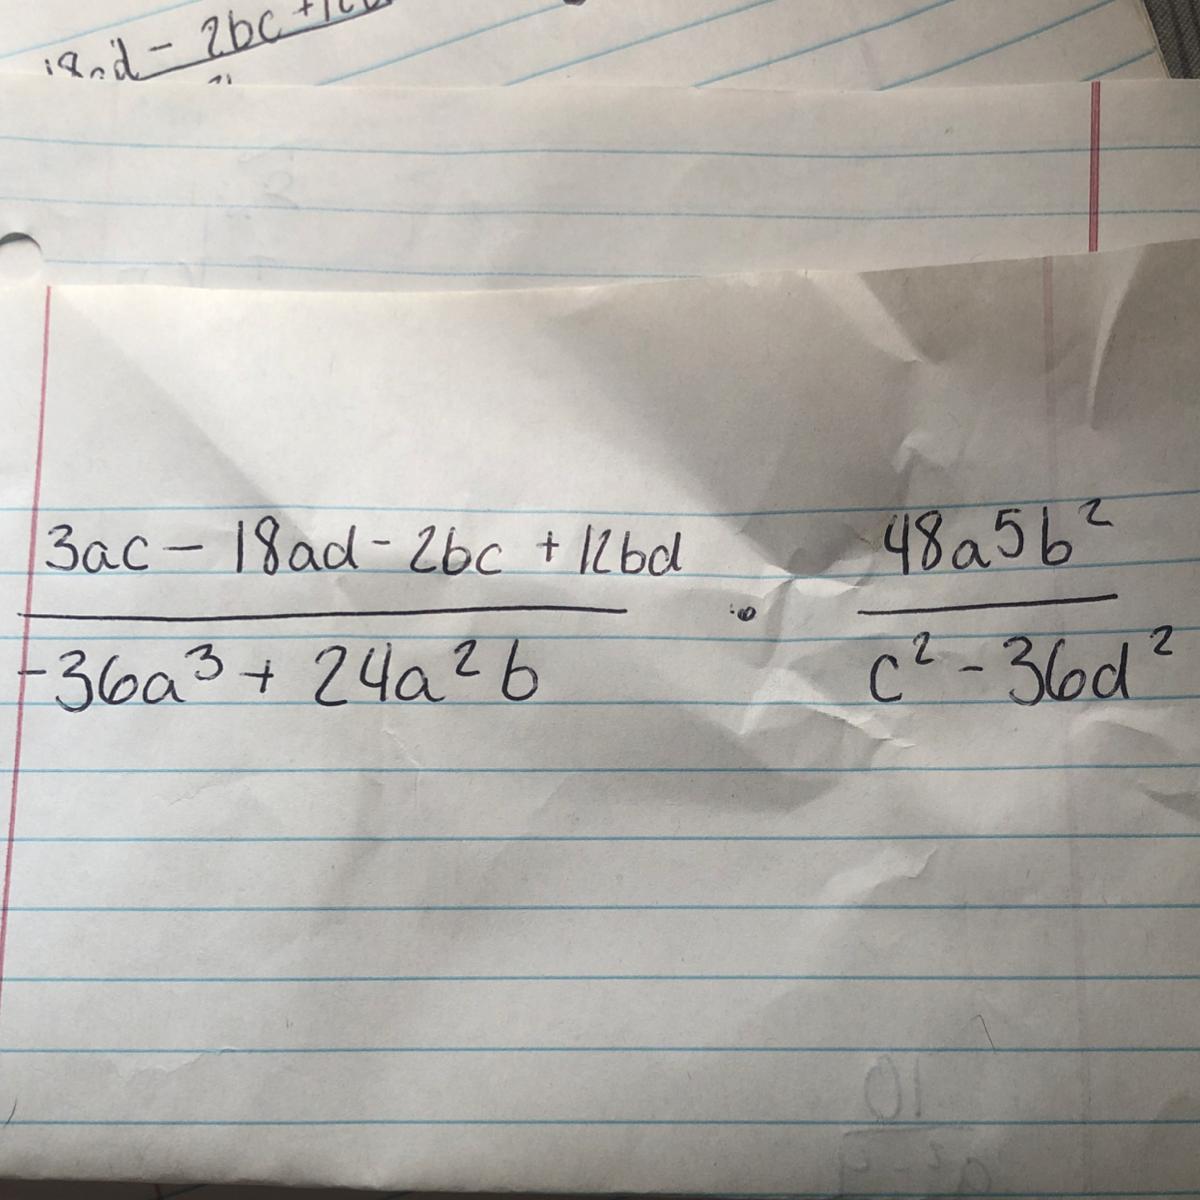 18ad - 2bc +
3ac - 18ad - 2bc + 12bd
-36a³ + 24a²b
·
48a5b²
c² - 36d²